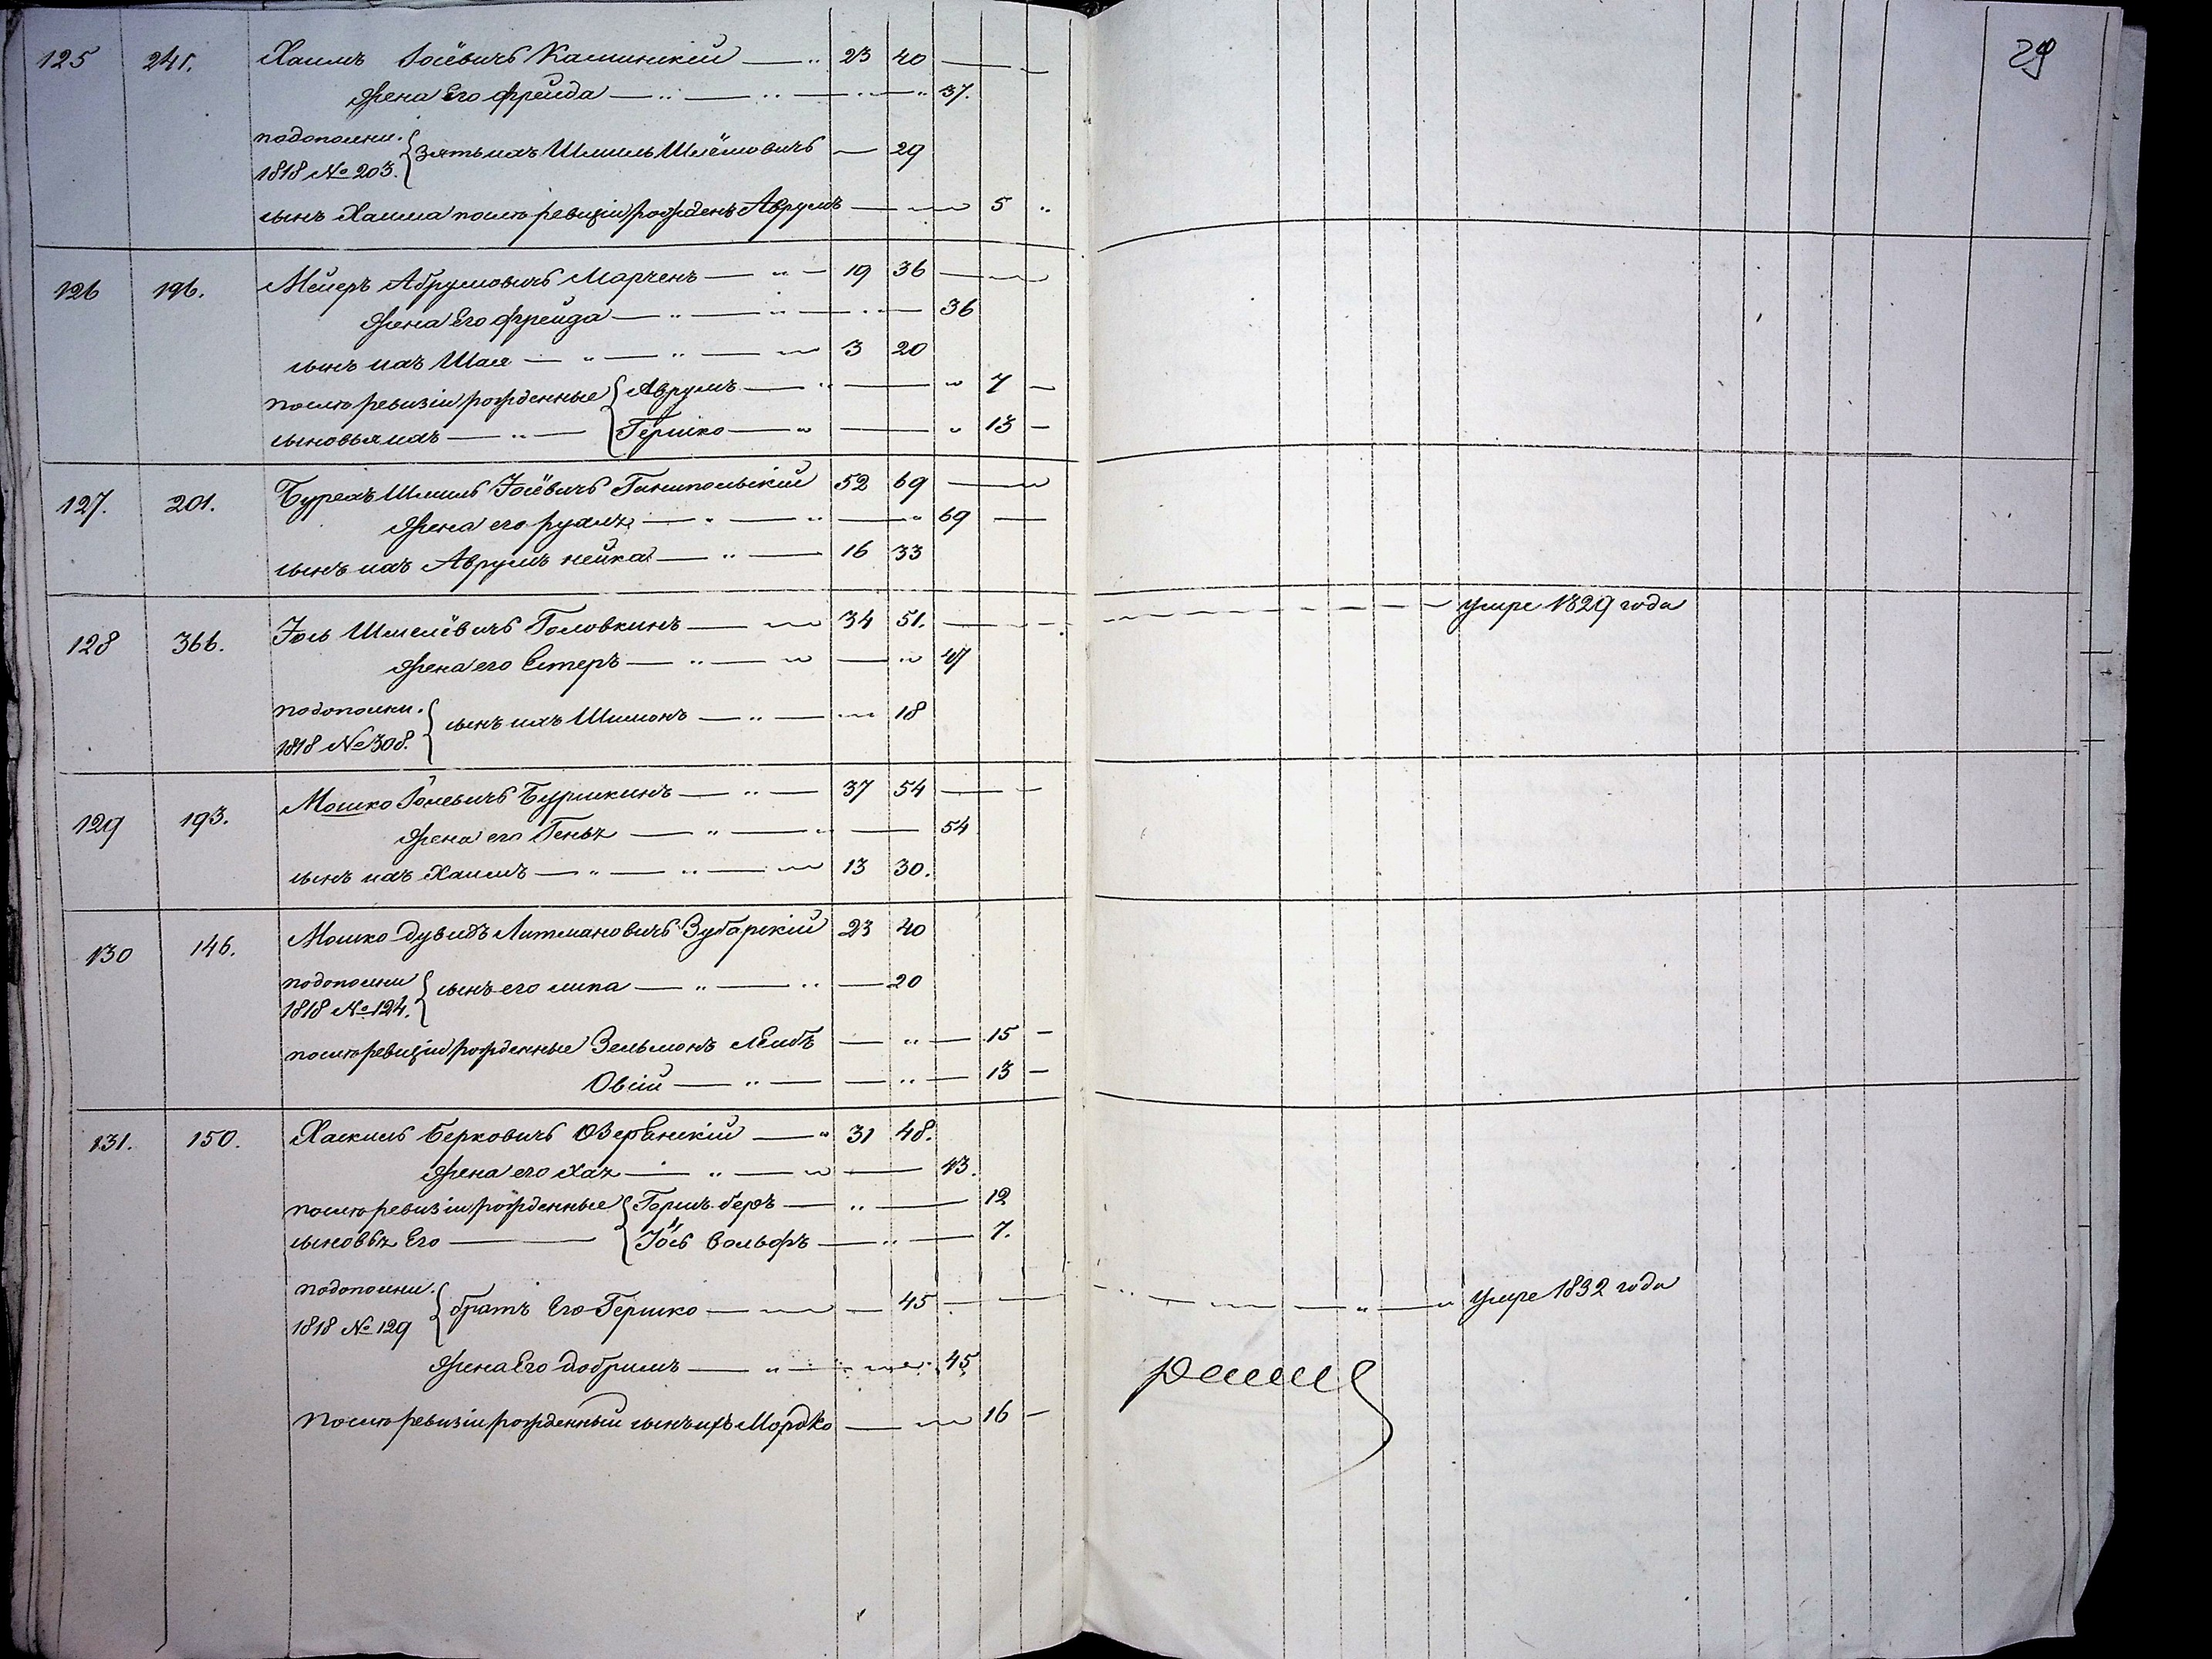 29
125 241. Хаимъ Іосёвичъ Каминскій 23 40
Жена Его фрейда 37.
подополни.
1818 № 203. зять ихъ Шмиль Шлёмовичъ 29
сынъ Хаима после ревизіи рожденъ Аврумъ 5
126 196. Мейеръ Абрумовичъ Марченъ 19 36
Жена Его фрейда 36
сынъ ихъ Шая 3 20
после ревизіи рожденные Аврумъ 7
сыновья ихъ Гершко 13
127. 201. Бурехъ Шмиль Іосёвичъ Ганипольскій 52 69
Жена его рухля 69
сынъ ихъ Аврумъ нейка 16 33
128 366. Іось Шмелёвичъ Головкинъ 34 51. умре 1829 года
Жена его Естеръ 47
подополни.
1818 № 308. сынъ ихъ Шимонъ 18
129 193. Мошко Іосевичъ Бурмкинъ 37 54
Жена его Геня 54
сынъ ихъ Хаимъ 13 30.
130 146. Мошко дувидъ Литмановичъ Зубарскій 23 40
подополни
1818 № 124. сынъ его липа 20
после ревизіи рожденные Зельмонъ Лейбъ 15
Овсій 13
131. 150. Хаскиль Берковичъ Озерянскій 31 48.
Жена его хая 43.
после ревизіи рожденные Гершъ беръ 12
сыновья Его Іось Вольфъ 7.
подополни.
1818 № 129 братъ Его Гершко 45 умре 1832 года
Жена Его добришъ 45
после ревизіи рожденный сынъ ихъ Мордко 16